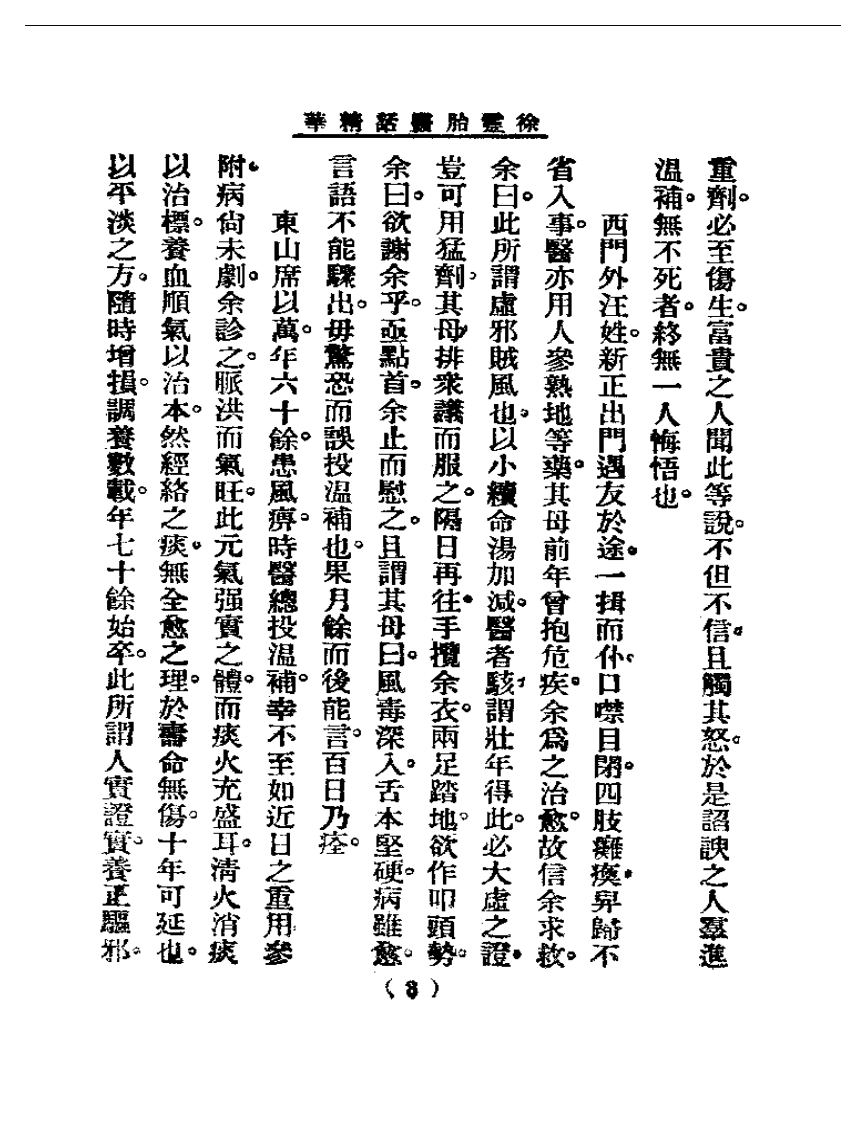 徐靈胎醫話精華
重劑。必至傷生。富貴之人聞此等說。不但不信。且觸其怒。於是諂諛之人羣進
溫補。無不死者。終無一人悔悟也。
西門外汪姓。新正出門遇友於途。一揖而仆。口噤目閉。四肢癱瘓。舁歸不
省人事。醫亦用人參熟地等藥。其母前年曾抱危疾。余爲之治愈。故信余求救。
余曰。此所謂虛邪賊風也。以小續命湯加減。醫者駭。謂壯年得此。必大虛之證。
豈可用猛劑。其母排衆議而服之。隔日再往。手攬余衣。兩足踏地。欲作叩頭勢。
余曰。欲謝余乎。亟點首。余止而慰之。且謂其母曰。風毒深入。舌本堅硬。病雖愈。
言語不能驟出。毋驚恐而誤投溫補也。果月餘而後能言。百日乃痊。
東山席以萬。年六十餘。患風痹。時醫總投溫補。幸不至如近日之重用參
附。病尙未劇。余診之。脈洪而氣旺。此元氣强實之體。而痰火充盛耳。清火消痰
以治標。養血順氣以治本。然經絡之痰。無全愈之理。於壽命無傷。十年可延也。
以平淡之方。隨時增損。調養數載。年七十餘始卒。此所謂人實證實。養正驅邪。
(8)